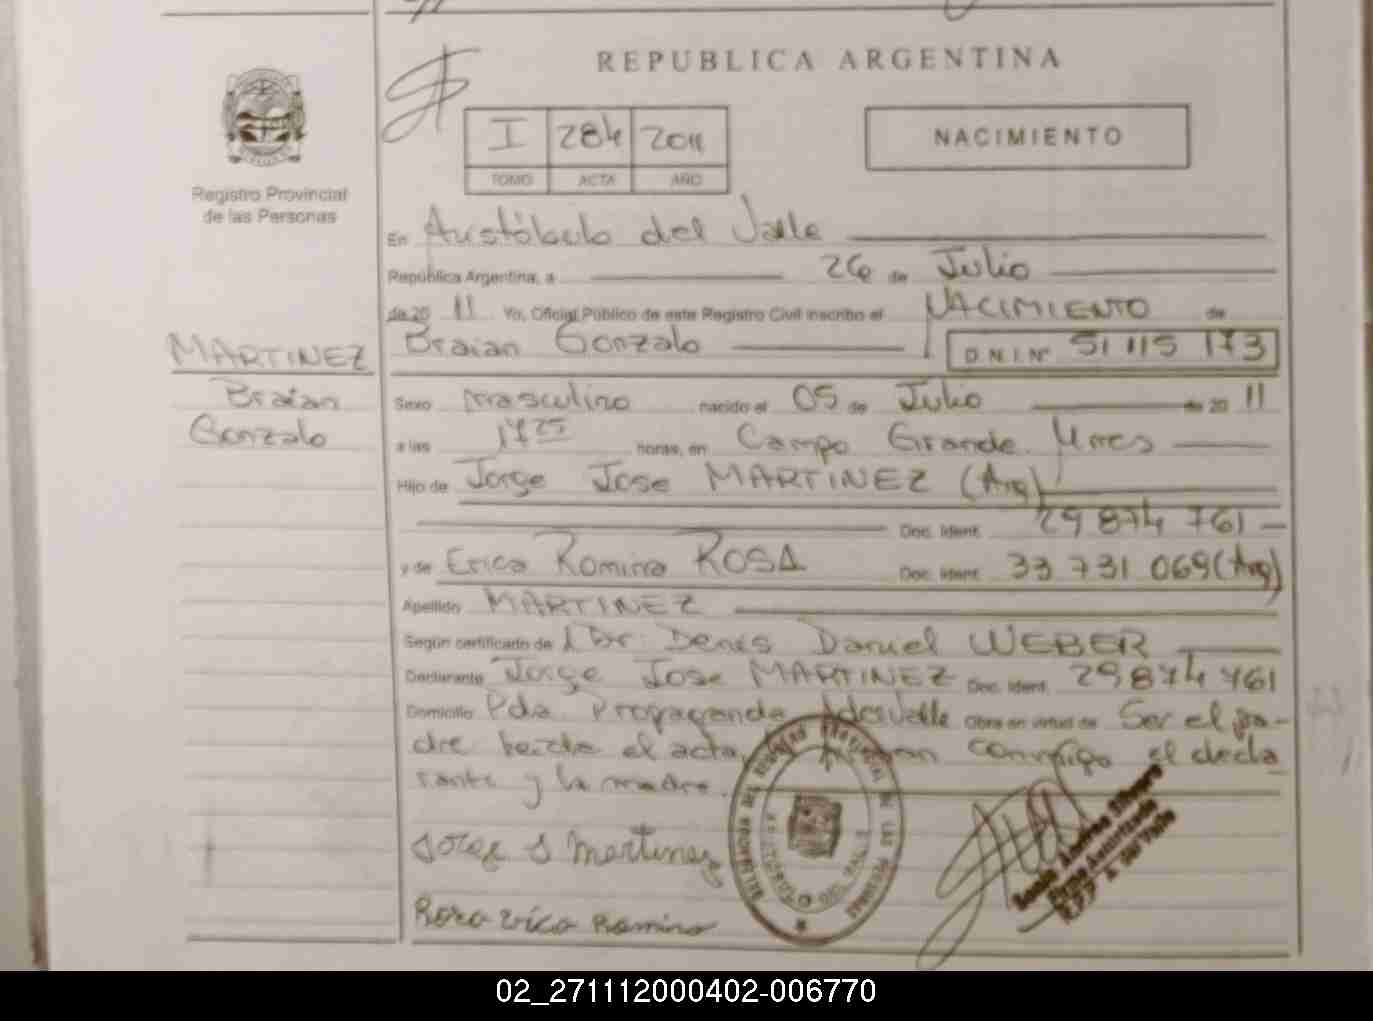 REPUBLICA ARGENTINA
I 284 2011
TOMO ACTA AÑO
NACIMIENTO
Registro Provincial
de las Personas
MARTINEZ
Braian
Gonzalo
En Aristóbulo del Valle
República Argentina, a 26 de Julio
de 20 11 Yo, Oficial Público de este Registro Civil inscribo el NACIMIENTO de
Braian Gonzalo D.N.I. Nº 51 115 173
Sexo masculino nacido el 05 de Julio de 20 11
a las 17 25 horas, en Campo Grande. Mnes
Hijo de Jorge Jose MARTINEZ (Arg)
Doc. Ident. 29 874 761
y de Erica Romina ROSA Doc. Ident. 33 731 069 (Arg)
Apellido MARTINEZ
Según certificado de Dr. Denis Daniel WEBER
Declarante Jorge Jose MARTINEZ Doc. Ident. 29 874 761
Domicilio Pda. Propaganda Adelvalle Obra en virtud de Ser el pa-
dre leída el acta, conmigo el decla
rante y la madre.
Jorge J Martinez
Rosa Erica Romina
02_271112000402-006770